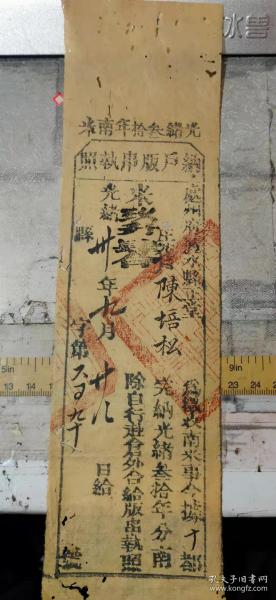 光緒叁拾年南米
納戶版串執照
處州府麗水縣正堂 為徵收南米事今據十都
陳培松 完納光緒叁拾年分南
米
除自行過倉外合給版串執照
光緒卅年九月廿八日給
縣 字第 六百九十 號
孔夫子旧书网